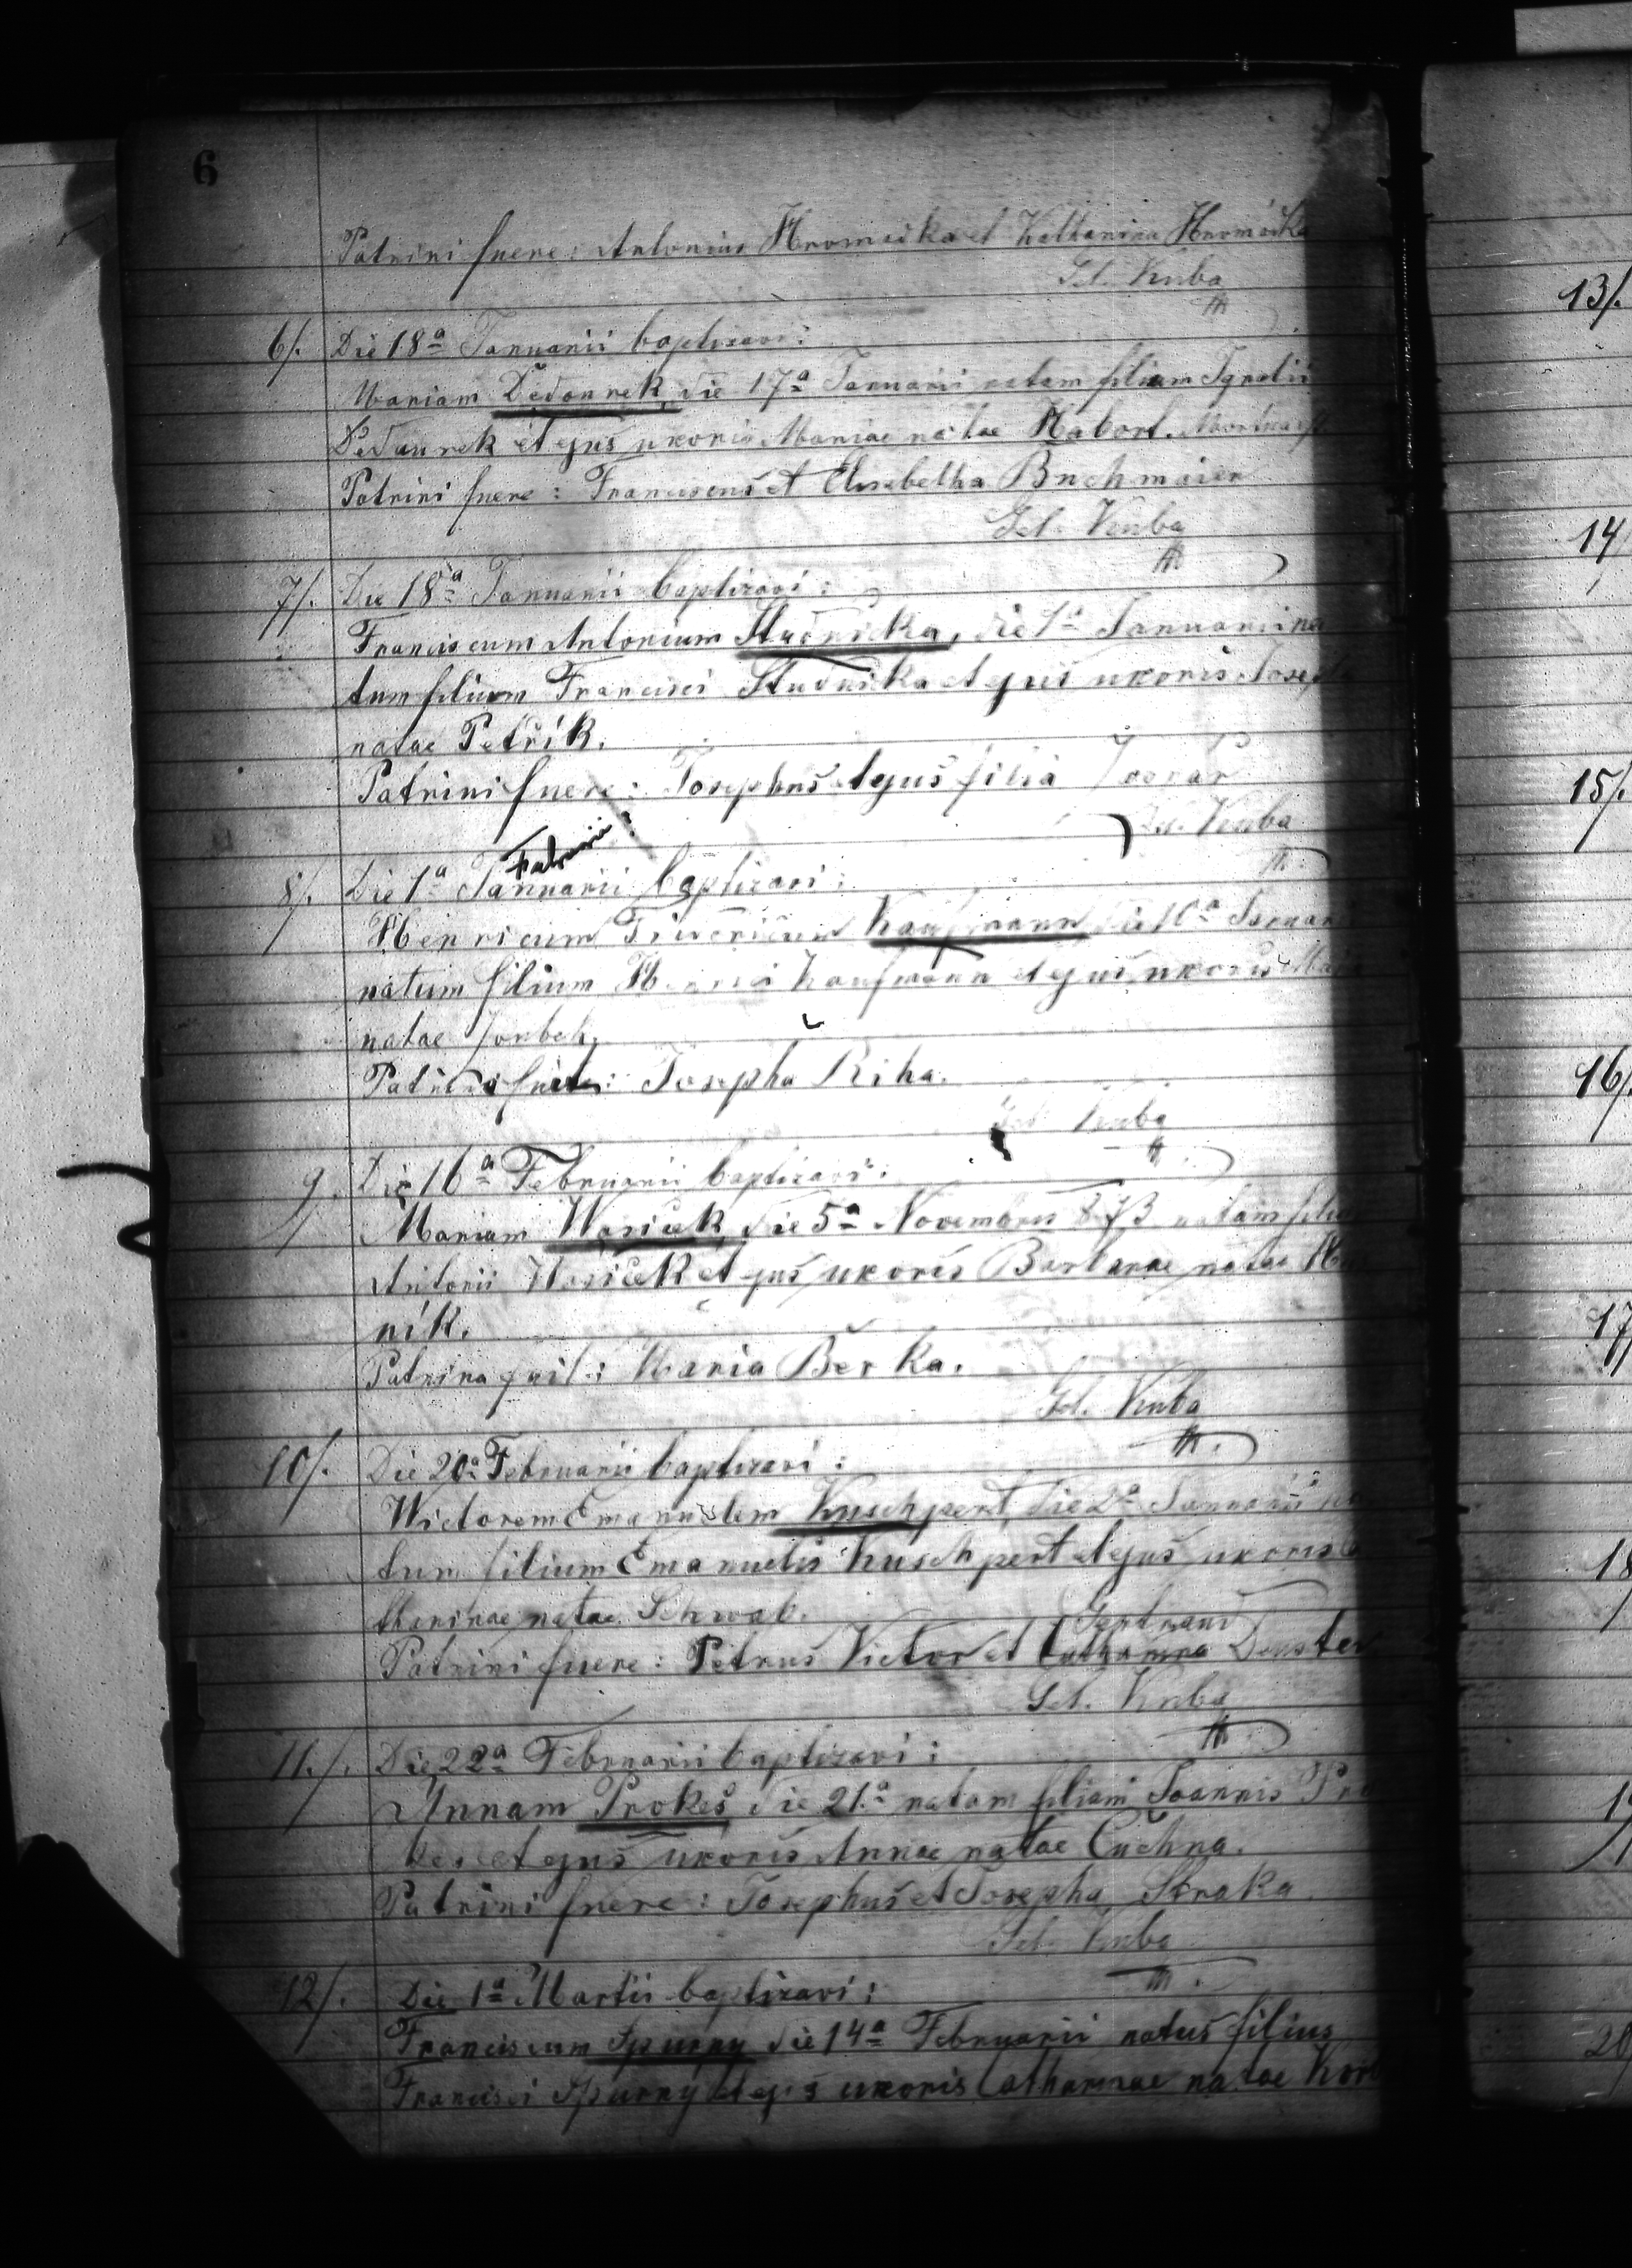 6
Patrini fuere: Antonius Hromadka et Katharina Hromadka
Gul. Kuba
6/. Die 18ª Januarii baptizavi:
Mariam Dedourek, die 17ª Januarii natam filiam Ignatii
Dedaurek et ejus uxoris Mariae natae Habort.
Patrini fuere: Franciscus et Elisabetha Buchmaier
Gul. Kuba
7/. Die 18ª Januarii baptizavi:
Franciscum Antonium Studnička, die 1ª Januarii na
tum filium Francisci Studnička et ejus uxoris Josepha
natae Petřík.
Patrini fuere: Josephus et ejus filia
Gul. Kuba
Februarii
8/. Die 1ª Januarii baptizavi:
Henricum Kaufmann die 10ª Januari
natum filium Henrici Kaufmann et ejus uxoris
natae
Josepha Řiha.
Gul. Kuba
9. Die 16ª Februarii baptizavi:
Mariam Wasiček, die 5ª Novembris 873 natam filiam
Antonii Wasiček et ejus uxoris Barbarae natae
ník.
Patrina fuit: Maria Berka.
Gul. Kuba
10/. Die 20ª Februarii baptizavi:
Wictorem Emanuelem Kuschpert, die 2ª Januarii na
tum filium Emanuelis Kuschpert et ejus uxoris Ca
tharinae natae Schwab.
Gertraud
Patrini fuere: Petrus Victor et Catharina Duster
Gul. Kuba
11./. Die 22ª Februarii baptizavi:
Annam Prokeš die 21ª natam filiam Joannis Pro
keš et ejus uxoris Annae natae Cuchna.
Patrini fuere: Josephus et Josepha Straka.
Gul. Kuba
12/. Die 1ª Martii baptizavi:
Franciscum Spurny die 14ª Februarii natus filius
Francisci Spurny et ejus uxoris Catharinae natae
13/.
14
15/.
16/.
17
18
19
20